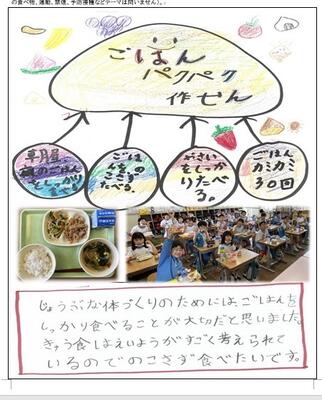 の食べ物、運動、禁煙、予防接種などテーマは問いません)。
ごはん
パクパク
作せん
しっかり
たべる。
ごはん
をのこさず
たべる。
やさい
をしっかり
たべる。
ごはん
カミカミ
30回
じょうぶな体づくりのためにはごはんを
しっかり食べることが大切だと思いました。
きゅう食はえいようがすごく考えられて
いるのでのこさず食べたいです。